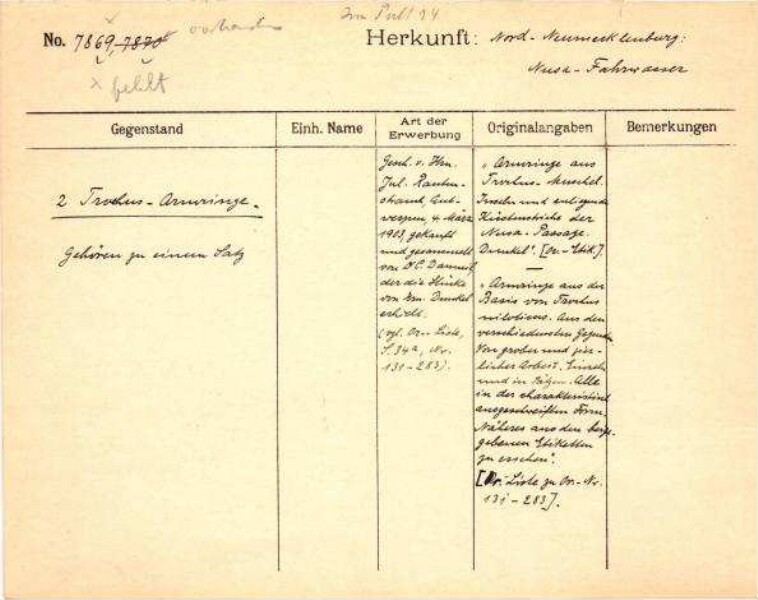 Im Pult 24
No. 7869, 7870 vorhanden
x fehlt
Herkunft: Nord-Neumecklenburg:
Nusa-Fahrwasser
Gegenstand
Einh. Name
Art der Erwerbung
Originalangaben
Bemerkungen
2 Trochus-Armringe.
Gehören zu einem Satz
Gesch. v. Hrn.
Jul. Rauten-
strauch, Ant-
werpen, 4. März
1903, gekauft
und gesammelt
von Dr C. Danneil,
der die Stücke
von Hrn. Dunckel
erhielt.
(vgl. Or.-Liste,
S. 34a, Nr.
131-283).
"Armringe aus
Trochus-Muschel.
Inseln und anliegende
Küstenstriche der
Nusa-Passage.
Dunckel". [Or.-Etik.].
"Armringe aus der
Basis von Trochus
niloticus. Aus den
verschiedensten Gegenden
Von grober und zier-
licher Arbeit. Einzeln
und in Sätzen. Alle
in der charakteristisch
ausgeschweiften Form.
Näheres aus den beige-
gebenen Etiketten
zu ersehen".
[Or.-Liste zu Or.-Nr.
131-283].